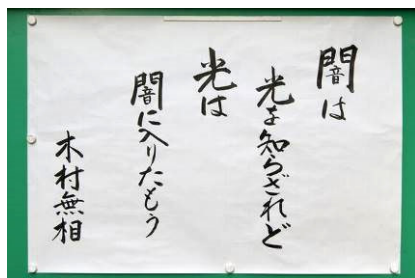 闇は
光を知らざれど
光は
闇に入りたもう
木村無相